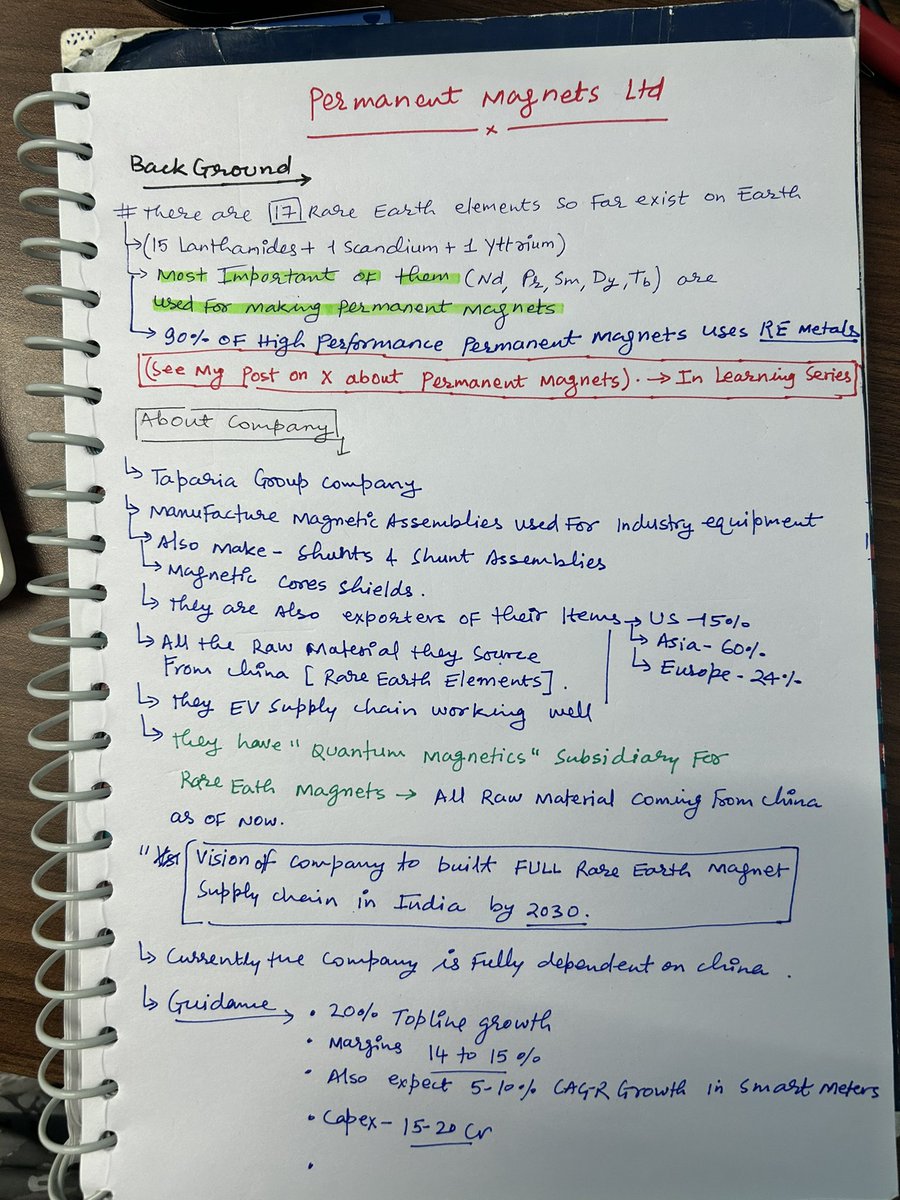 Permanent Magnets Ltd
x
Back Ground
# There are 17 Rare Earth elements so far exist on Earth
(15 Lanthamides + 1 Scandium + 1 Yttrium)
Most Important of them (Nd, Pr, Sm, Dy, Tb) are
used for making permanent magnets
90% of High Performance Permanent Magnets uses RE Metals
(See My Post on X about Permanent Magnets). → In Learning Series
About Company
Taparia Group Company
Manufacture Magnetic Assemblies used for Industry equipment
Also make - Shunts & Shunt Assemblies
Magnetic Cores Shields.
They are Also exporters of their Items → US - 15%
Asia - 60%
Europe - 24%
All the Raw Material they Source
From China [Rare Earth Elements].
They EV supply chain working well
They have "Quantum Magnetics" Subsidiary For
Rare Eath Magnets → All Raw Material Coming from China
as of Now.
" Vision of Company to built FULL Rare Earth Magnet
Supply chain in India by 2030.
Currently the Company is fully dependent on China.
Guidance → • 20% Topline growth
• Margins 14 to 15%
• Also expect 5-10% CAGR Growth in Smart Meters
• Capex - 15-20 Cr
•